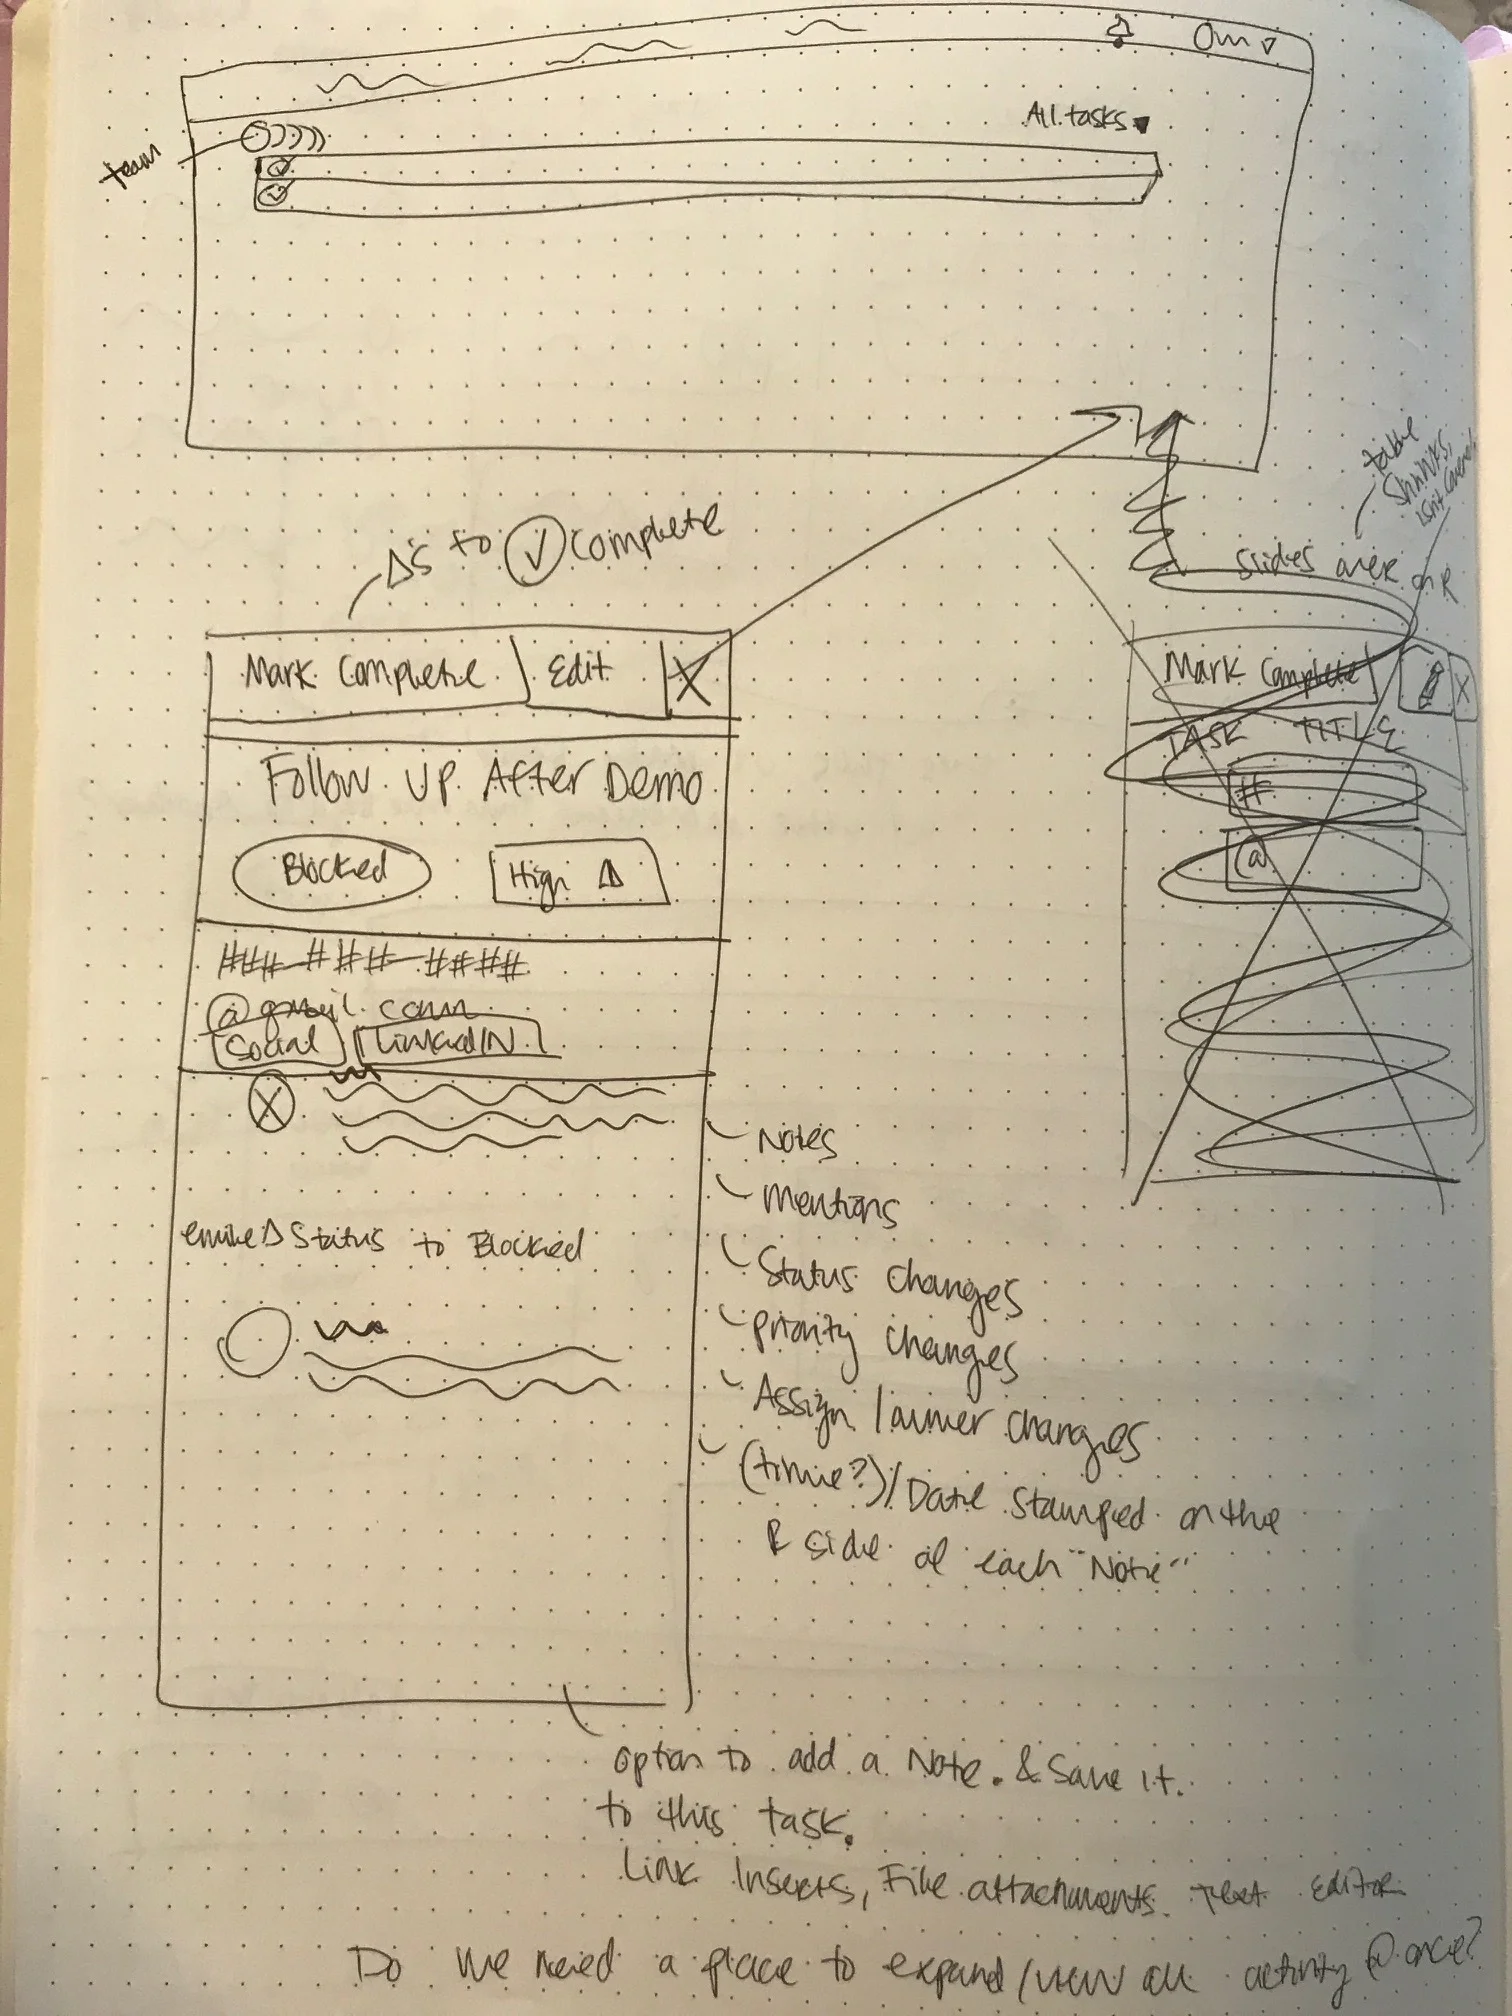 All tasks
team
table
shrinks,
isn't covered
Δs to ✓ complete
slides over on R
Mark Complete Edit X
Mark Complete X
TASK TITLE
#
@
Follow Up After Demo
Blocked High Δ
###-###-####
@gmail.com
Social LinkedIN
Notes
Mentions
Status changes
Priority changes
Assign/owner changes
(time?)/Date stamped on the
R side of each "Note"
Δ Status to Blocked
option to add a Note. & Save it.
to this task.
Link Inserts, File attachments. Text Editor
Do we need a place to expand/view all activity @ once?